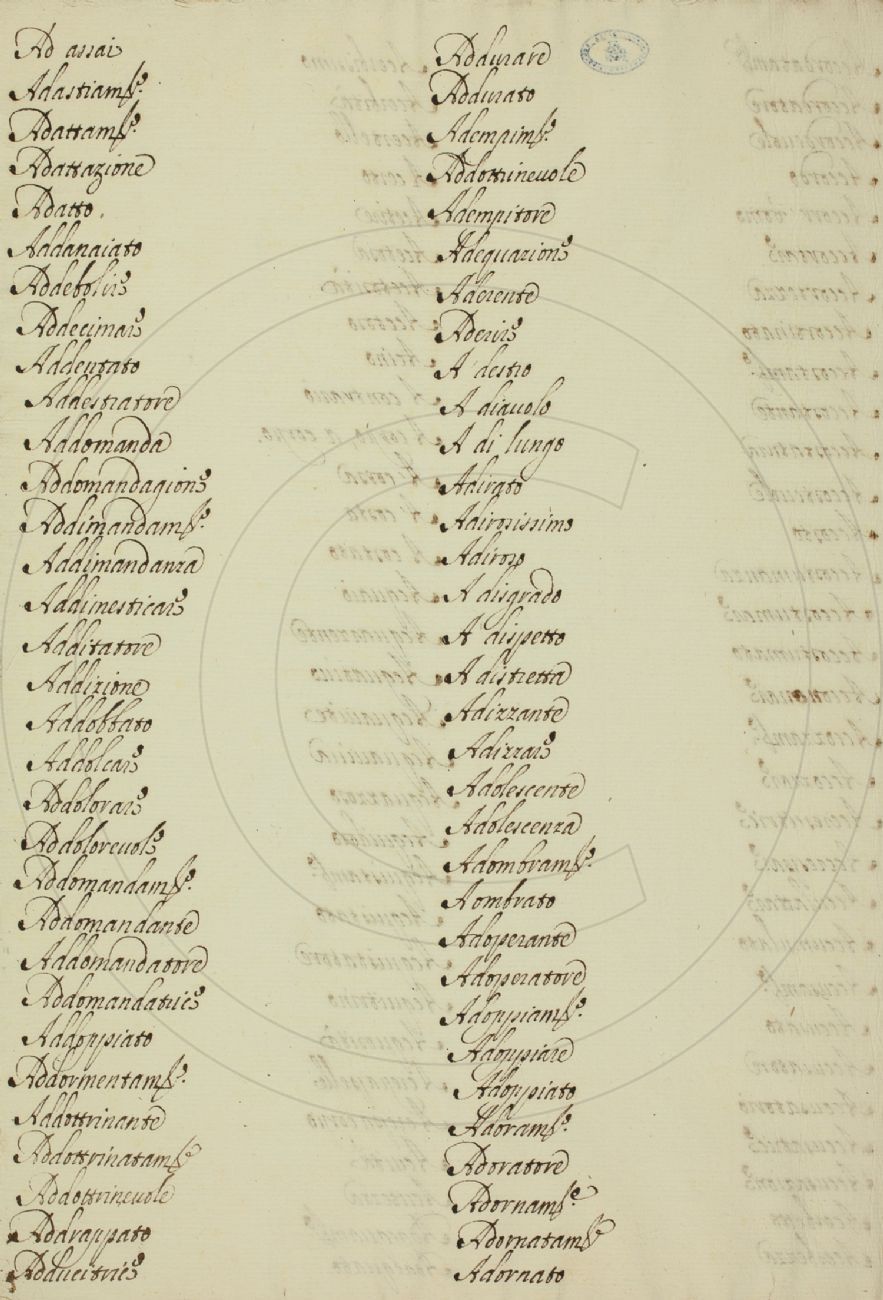 Ad assai
Adastiamṡe.
Adattamṡe.
Adattazione
Adatto.
Addanaiato
Addebolire
Addecimare
Addentato
Addestratore
Addomanda
Addomandagione
Addimandamṡe.
Addimandanza
Addimesticare
Additatore
Addizione
Addobbato
Addolcare
Addolorare
Addolorevole
Addomandamṡe.
Addomandante
Addomandatore
Addomandatrice
Addoppiato
Addormentamṡe.
Addottrinante
Addottrinatamṡe
Addottrinevole
Addrappato
Adducitrice
Addurare
Addurato
Adempimṡe.
Addottrinevole
Adempitore
Adequazione
Aderente
Aderire
A destro
A diavolo
A di lungo
Adirato
Adirosissimo
Adiroso
A disgrado
A dispetto
A distretta
Adizzante
Adizzare
Adolescente
Adolescenza
Adombramṡe.
Aombrato
Adoperante
Adoperatore
Adoppiamṡe.
Adoppiare
Adoppiato
Adoramṡe.
Adoratore
Adornamṡe.
Adornatamṡe
Adornato